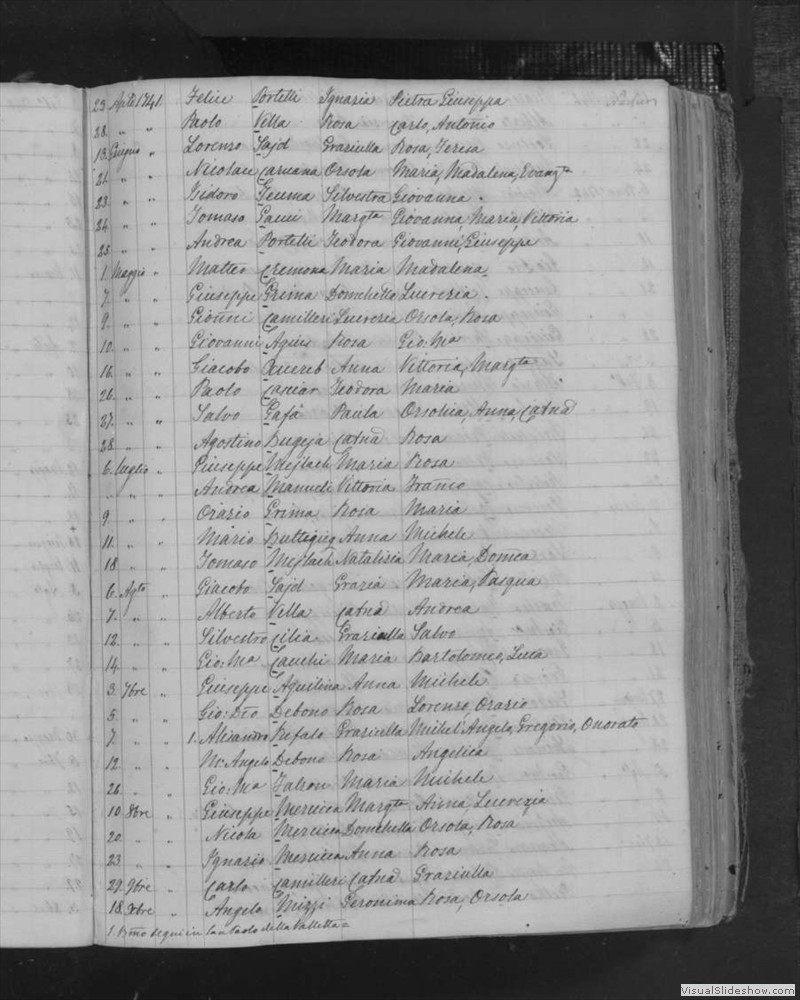 23. Aple 1741. Felice Portelli Ignazia Pietra Giuseppa
28. „ „ Paolo Vella Rosa Carlo, Antonio
13. Giugno „ Lorenzo Sajd Graziulla Rosa, Teresa
21. „ „ Nicolau Caruana Orsola Maria, Madalena, Evangta
23. „ „ Isidoro Teuma Silvestra Giovanna.
24. „ „ Tomaso Gauci Margta Giovanna, Maria, Vittoria
25. „ „ Andrea Portelli Teodora Giovanni, Giuseppe
1. Maggio „ Matteo Cremona Maria Madalena,
7. „ „ Giuseppe Grima Domchella Lucrezia.
9. „ „ Gionni Camilleri Lucrezia Orsola, Rosa
10. „ „ Giovanni Agius Rosa Gio: Ma
16. „ „ Giacobo Xuereb Anna Vittoria, Margta
26. „ „ Paolo Casciar Teodora Maria
27. „ „ Salvo Gafà Paula Orsolica, Anna, Catna
28. „ „ Agostino Bugeja Catna Rosa
6. Luglio „ Giuseppe Mejlach Maria Rosa
„ „ „ Andrea Manueli Vittoria Franco
9 „ „ Orazio Grima Rosa Maria
11. „ „ Mario Buttigieg Anna Michele
18. „ „ Tomaso Mejlach Natalizia Maria, Domca
6. Agto „ Giacobo Sajd Grazia Maria, Pasqua
7. „ „ Alberto Vella Catna Andrea
12. „ „ Silvestro Cilia Graziulla Salvo
14. „ „ Gio: Ma Cauchi Maria Bartolomeo, Luca
3. 7bre „ Giuseppe Aquilina Anna Michele
5. „ „ Gio: Dto Debono Rosa Lorenzo, Orazio
7. „ „ 1. Alisandro Refalo Graziulla Michel'Angelo, Gregorio, Onorato
12. „ „ Mc Angelo Debono Rosa Angelica
26. „ „ Gio: Ma Falzon Maria Michele
10. 8bre „ Giuseppe Mercieca Margta Anna, Lucrezia
20. „ „ Nicola Mercieca Domchella Orsola, Rosa
23 „ „ Ignazio Mercieca Anna Rosa
29. 9bre „ Carlo Camilleri Catna Graziulla
18. Xbre „ Angelo Mizzi Geronima Rosa, Orsola
1. segui in San Paolo della Valletta=
VisualSlideshow.com